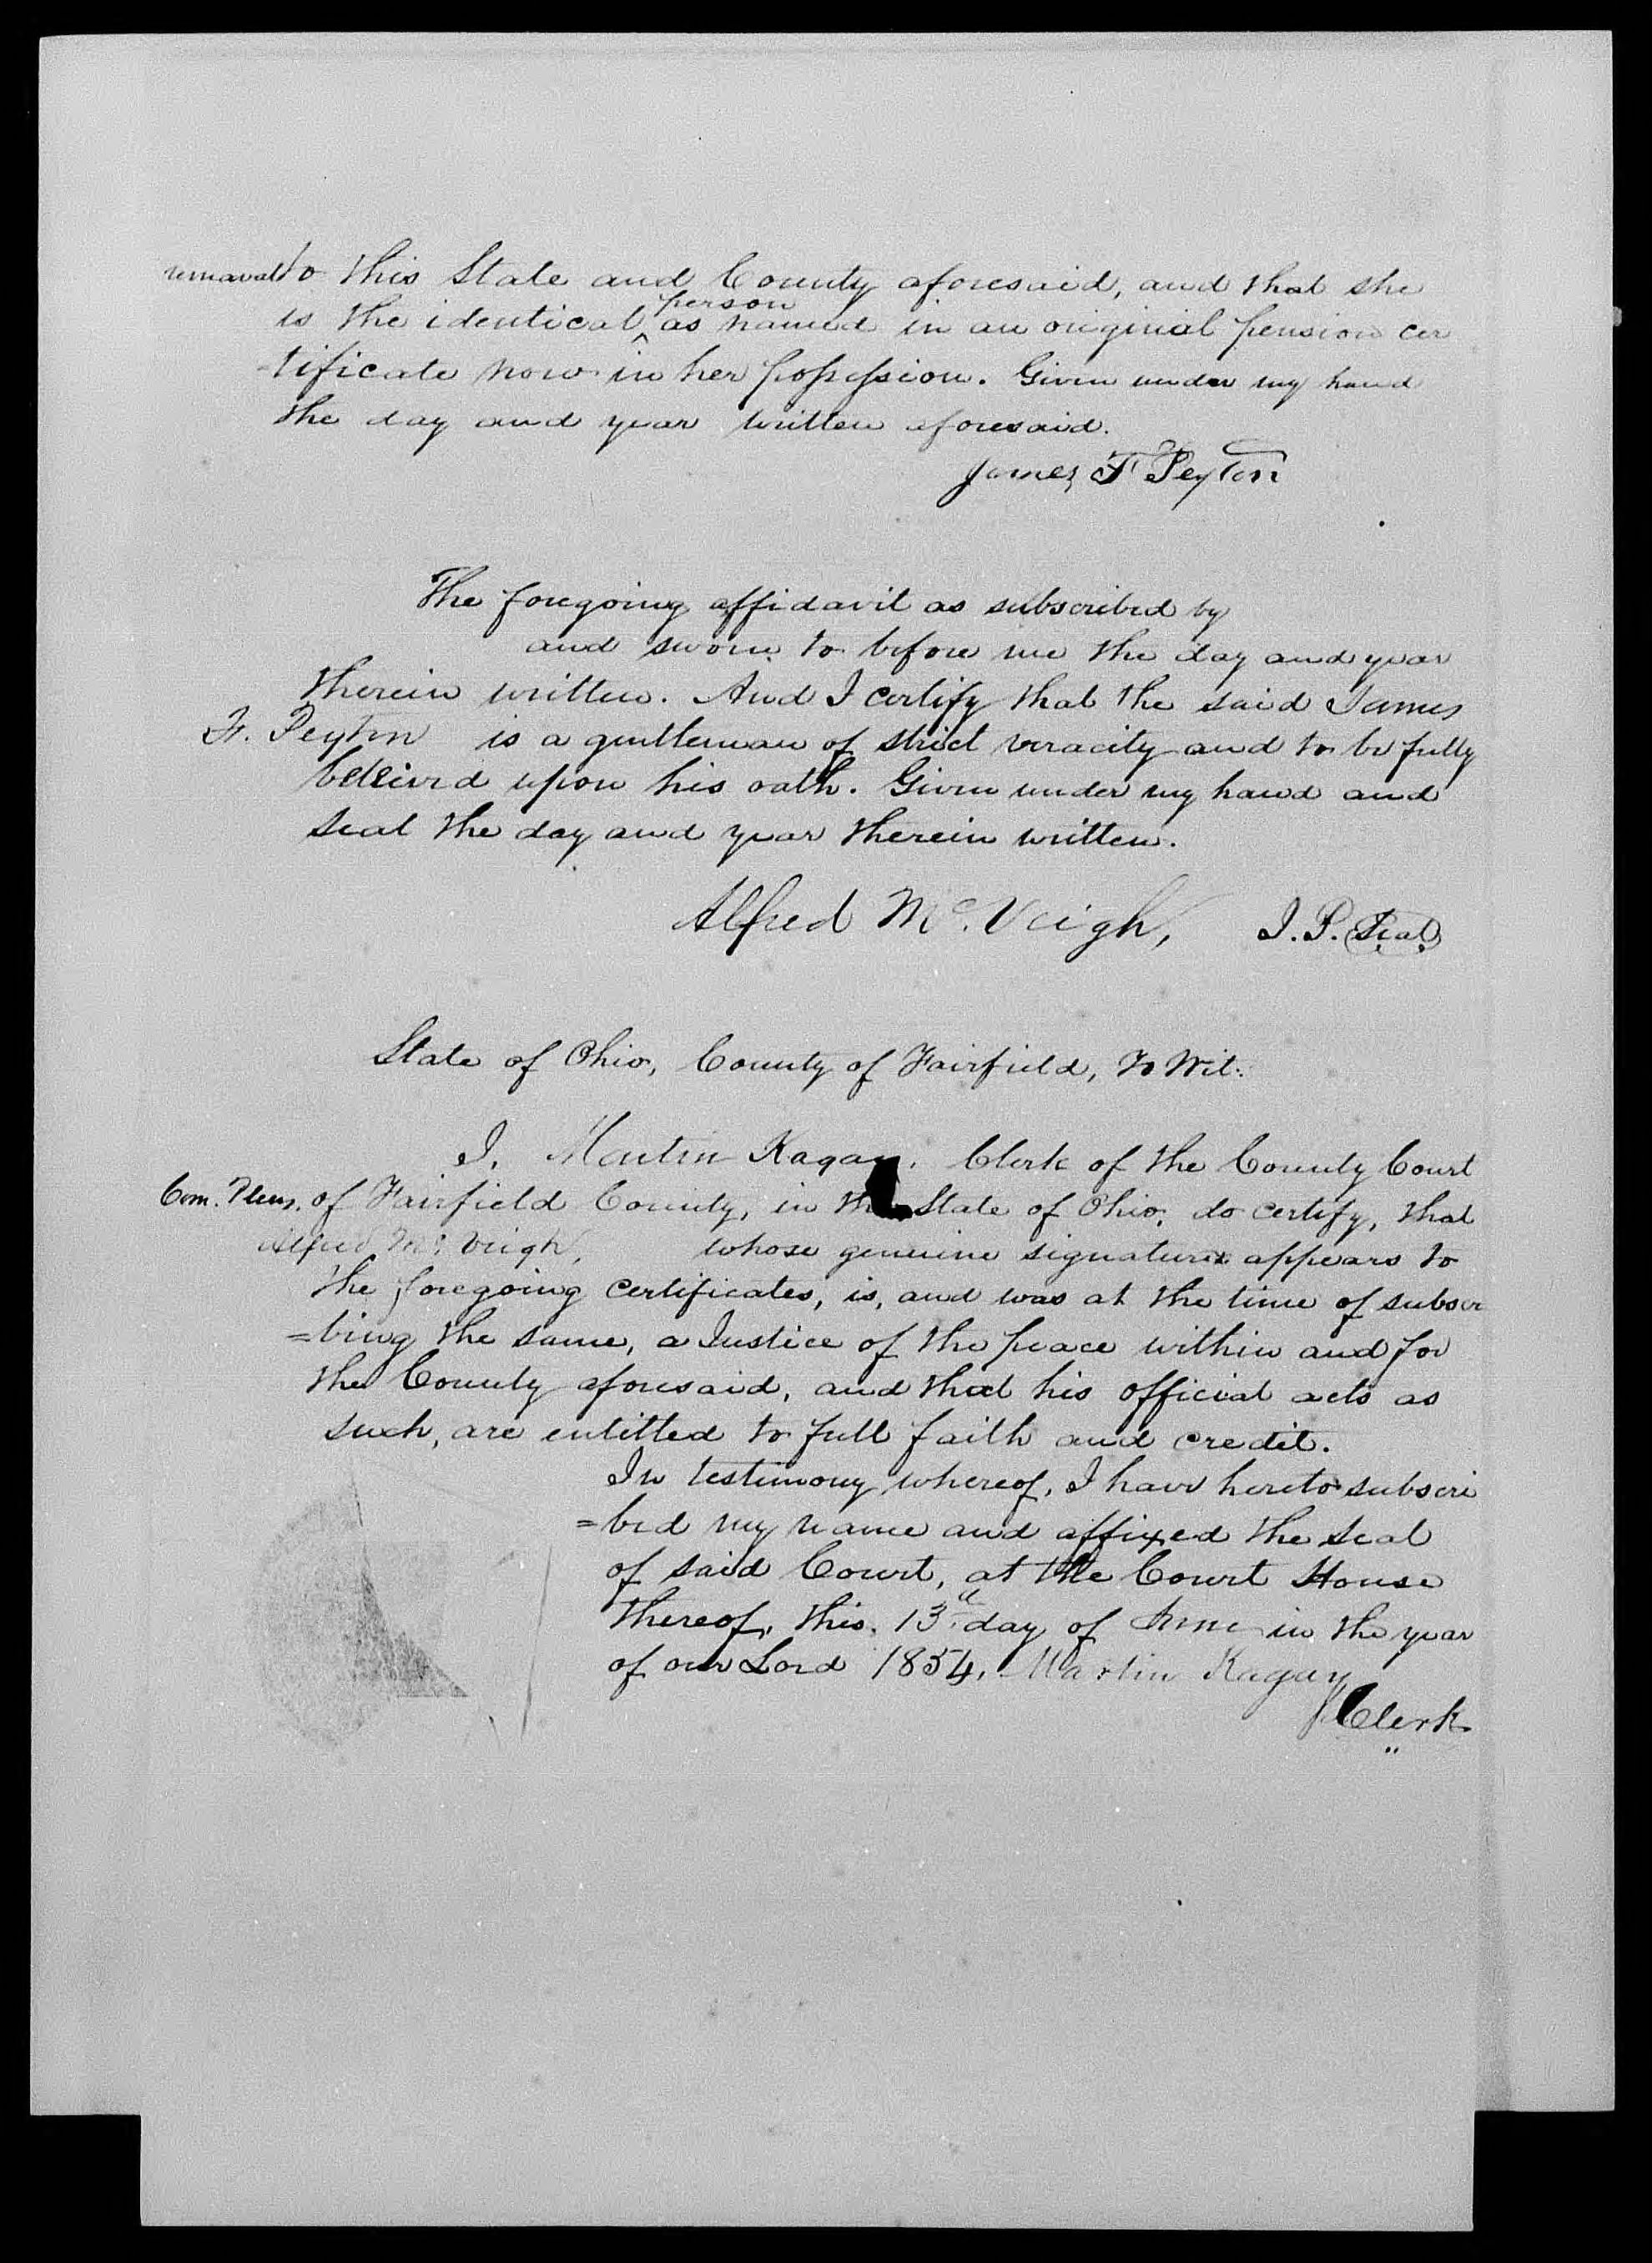 removal to this State and County aforesaid, and that she
person
is the identical ^ as named in an original pension cer
-tificate now in her possession. Given under my hand
the day and year written aforesaid.
James F Peyton
The foregoing affidavit as subscribed by
and sworn to before me the day and year
therein written. And I certify that the said James
F. Peyton is a gentleman of strict veracity and to be fully
believed upon his oath. Given under my hand and
seal the day and year therein written.
Alfred McVeigh, J.P. Seal
State of Ohio, County of Fairfield, To Wit:
I, Martin Kagay, Clerk of the County Court
Com. Pleas. of Fairfield County, in the State of Ohio, do certify, that
Alfred McVeigh, whose genuine signature appears to
the foregoing certificates, is, and was at the time of subscri
=bing the same, a Justice of the peace within and for
the County aforesaid, and that his official acts as
such, are entitled to full faith and credit.
In testimony whereof, I have hereto subscri
=bed my name and affixed the seal
of said Court, at the Court House
thereof, this 13th day of June in the year
of our Lord 1854. Martin Kagay
Clerk